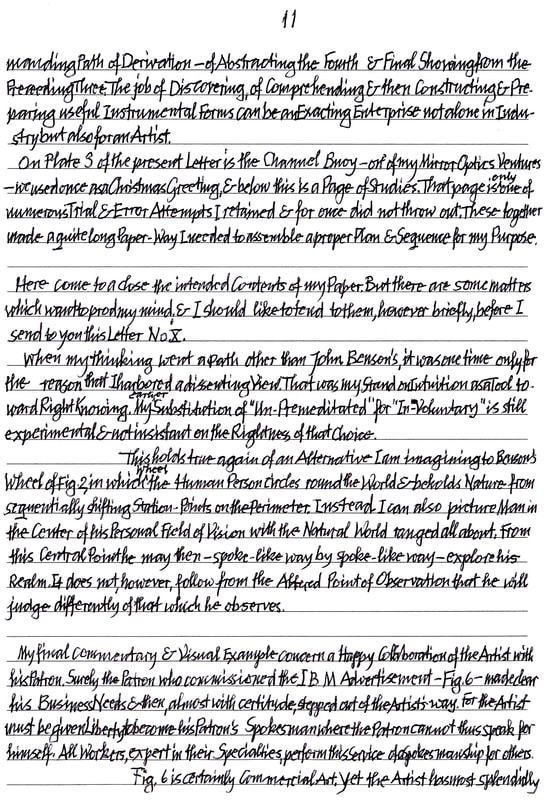 11
manding Path of Derivation – of Abstracting the Fourth & Final Showing from the
Preceeding Three. The job of Discovering, of Comprehending & then Constructing & Pre-
paring useful Instrumental Forms can be an Exacting Enterprise not alone in Indu-
stry but also for an Artist.
On Plate 3 of the present Letter is the Channel Buoy – on of my Mirror Optics Ventures
– we used once as a Christmas Greeting, & below this is a Page of Studies. That page is only one of
numerous Trial & Error Attempts I retained & for once did not throw out. These together
made a quite long Paper-Way I needed to assemble a proper Plan & Sequence for my Purpose.
Here come to a close the intended Contents of my Paper. But there are some matters
which want to prod my mind, & I should like to tend to them, however briefly, before I
send to you this Letter No X.
When my thinking went a path other than John Benson's, it was one time only for
the reason that I harbored a dissenting View. That was my Stand on Intuition as a Tool to-
ward Right Knowing. My earlier Substitution of "Un-Premeditated" for "In-Voluntary" is still
experimental & not insistant on the Rightness of that Choice.
This holds true again of an Alternative I am imagining to Benson's
Wheel of Fig. 2, in which wheel the Human Person circles round the World & beholds Nature from
sequentially shifting Station-Points on the Perimeter. Instead I can also picture Man in
the Center of his Personal Field of Vision with the Natural World ranged all about. From
this Central Point he may then – spoke-like way by spoke-like way – explore his
Realm. It does not, however, follow from the Altered Point of Observation that he will
judge differently of that which he observes.
My final Commentary & Visual Example concern a Happy Collaboration of the Artist with
his Patron. Surely the Patron who commissioned the I B M Advertisement – Fig. 6 – made clear
his Business Needs & then, almost with certitude, stepped out of the Artist's way. For the Artist
must be given Liberty to become his Patron's Spokesman where the Patron cannot thus speak for
himself. All Workers, expert in their Specialties, perform this Service of spokesmanship for others.
Fig. 6 is certainly Commercial Art. Yet the Artist has most splendidly